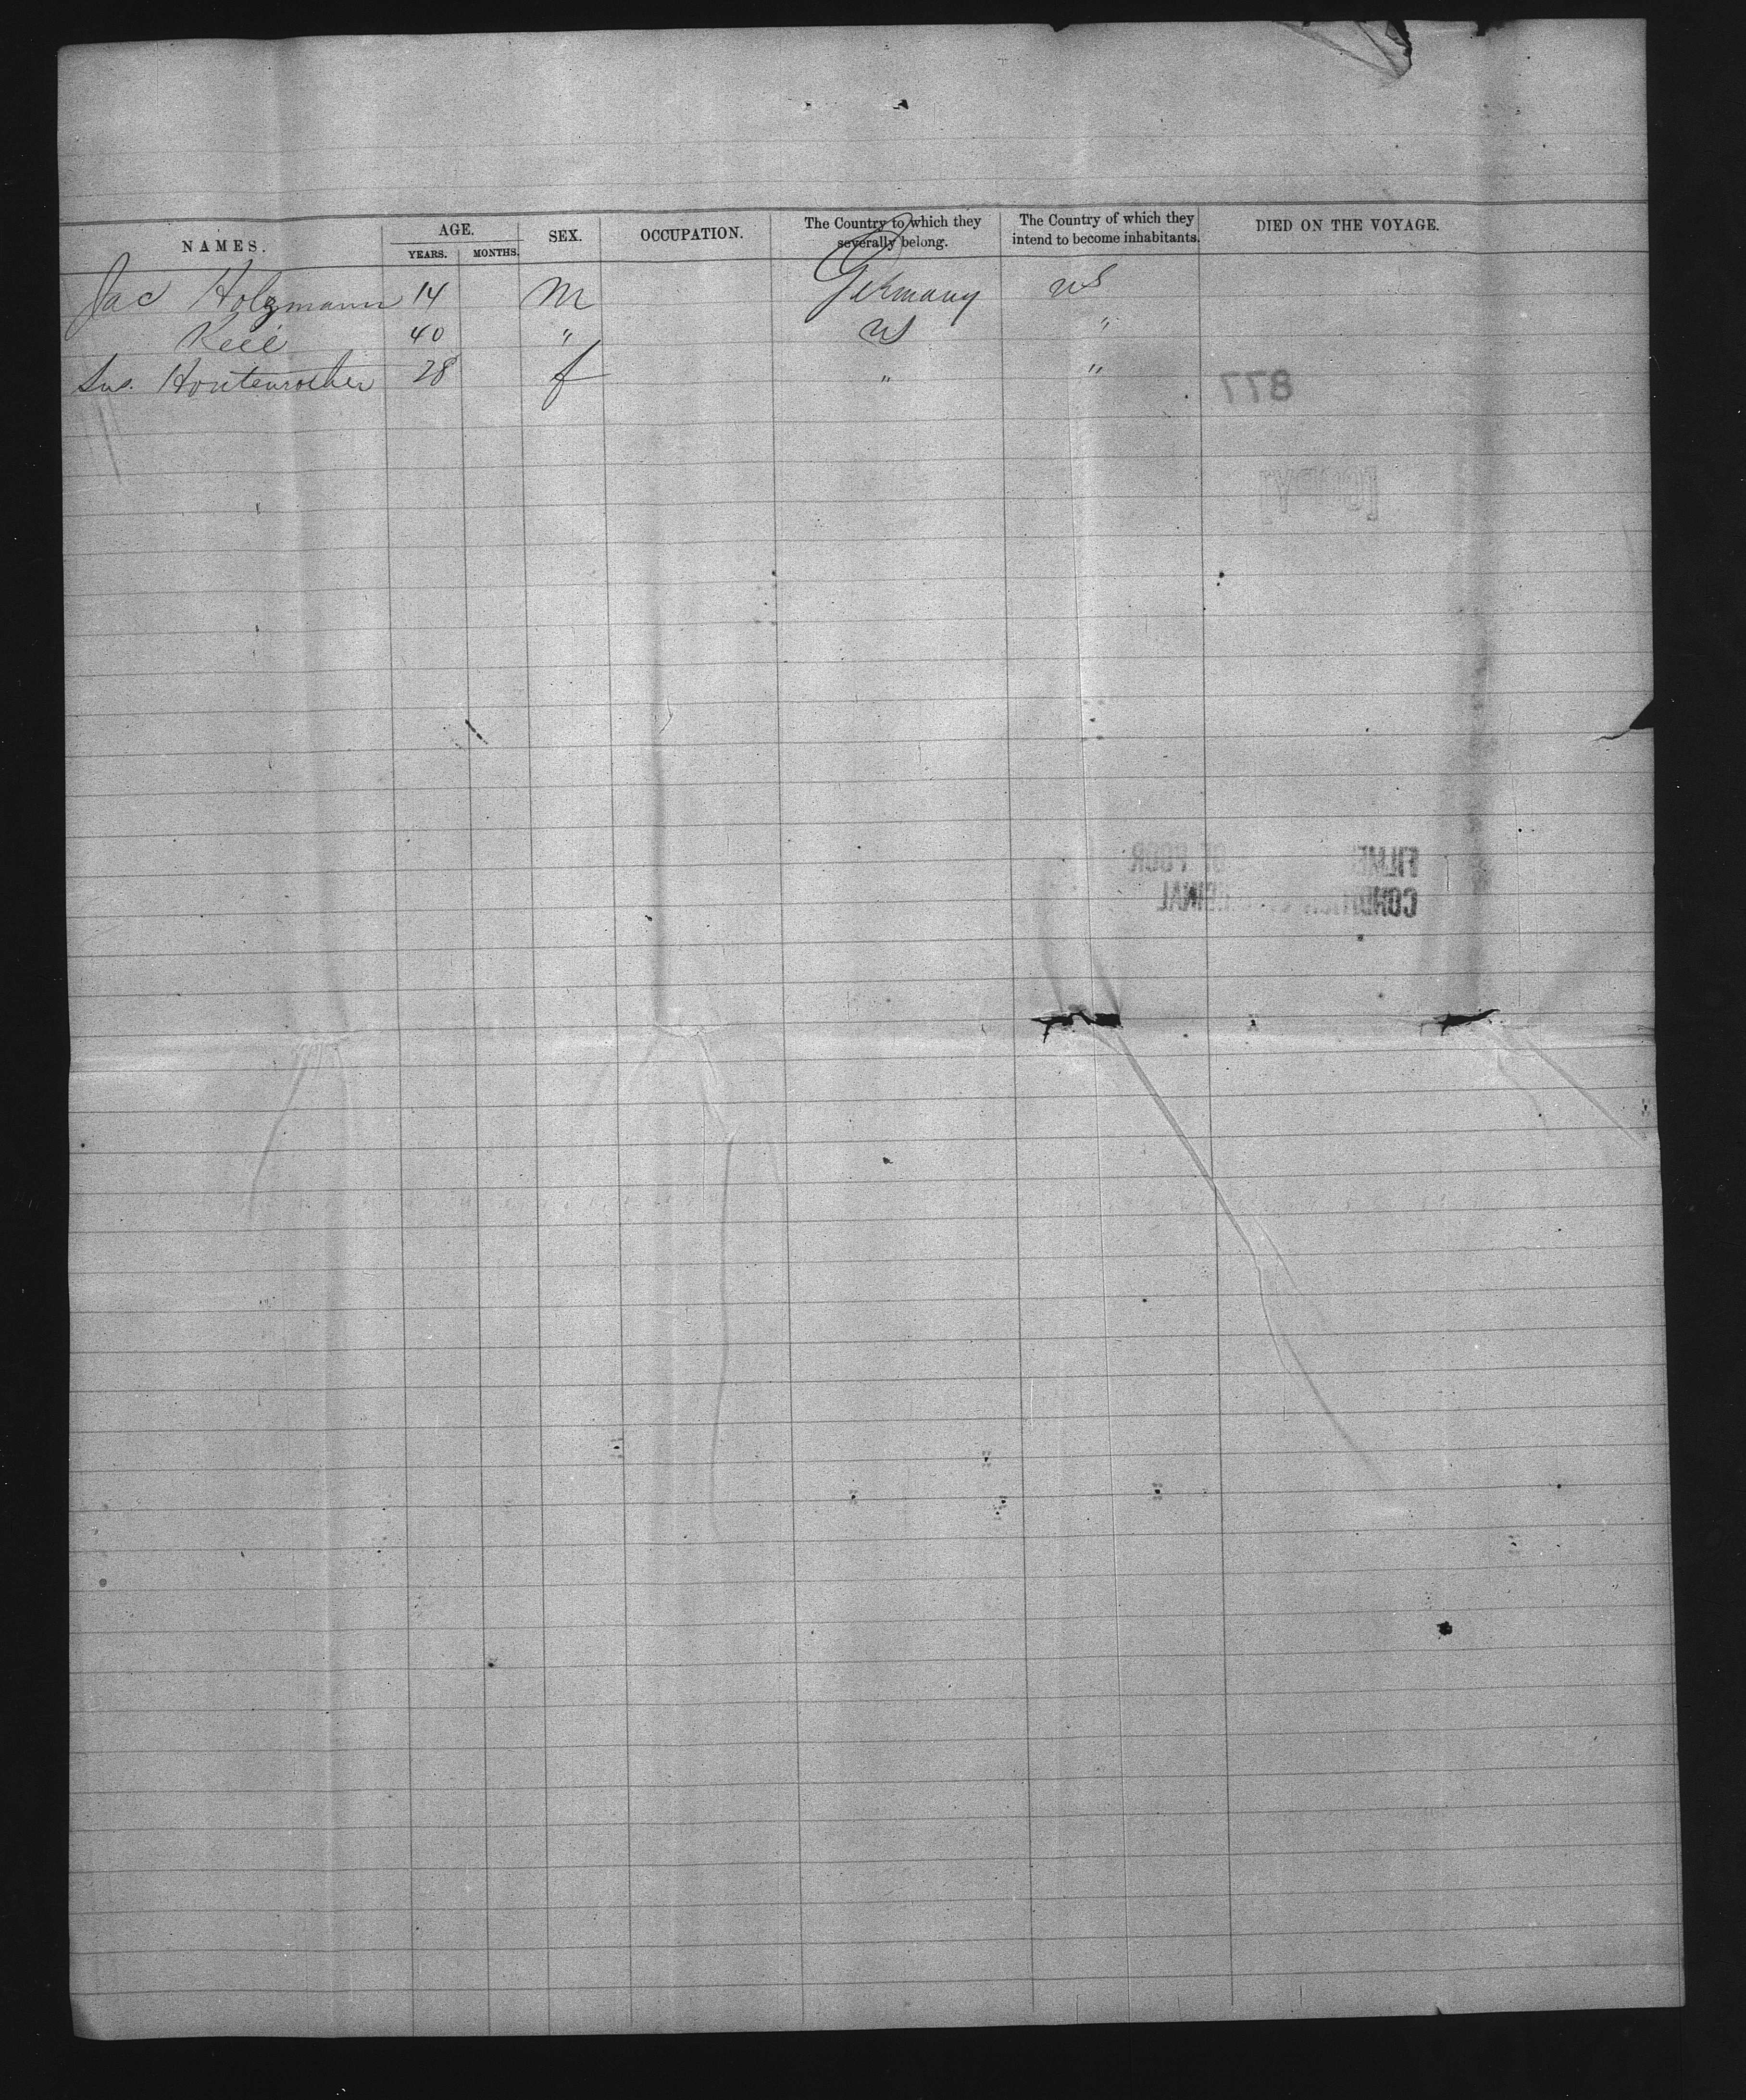 NAMES. AGE. YEARS. MONTHS. SEX. OCCUPATION. The Country to which they severally belong. The Country of which they intend to become inhabitants. DIED ON THE VOYAGE.
Jac Holzmann 14 M Germany US
Keil 40 " US "
28 f " "
877
[COPY]
FILMED OF POOR
CONDITION ORIGINAL